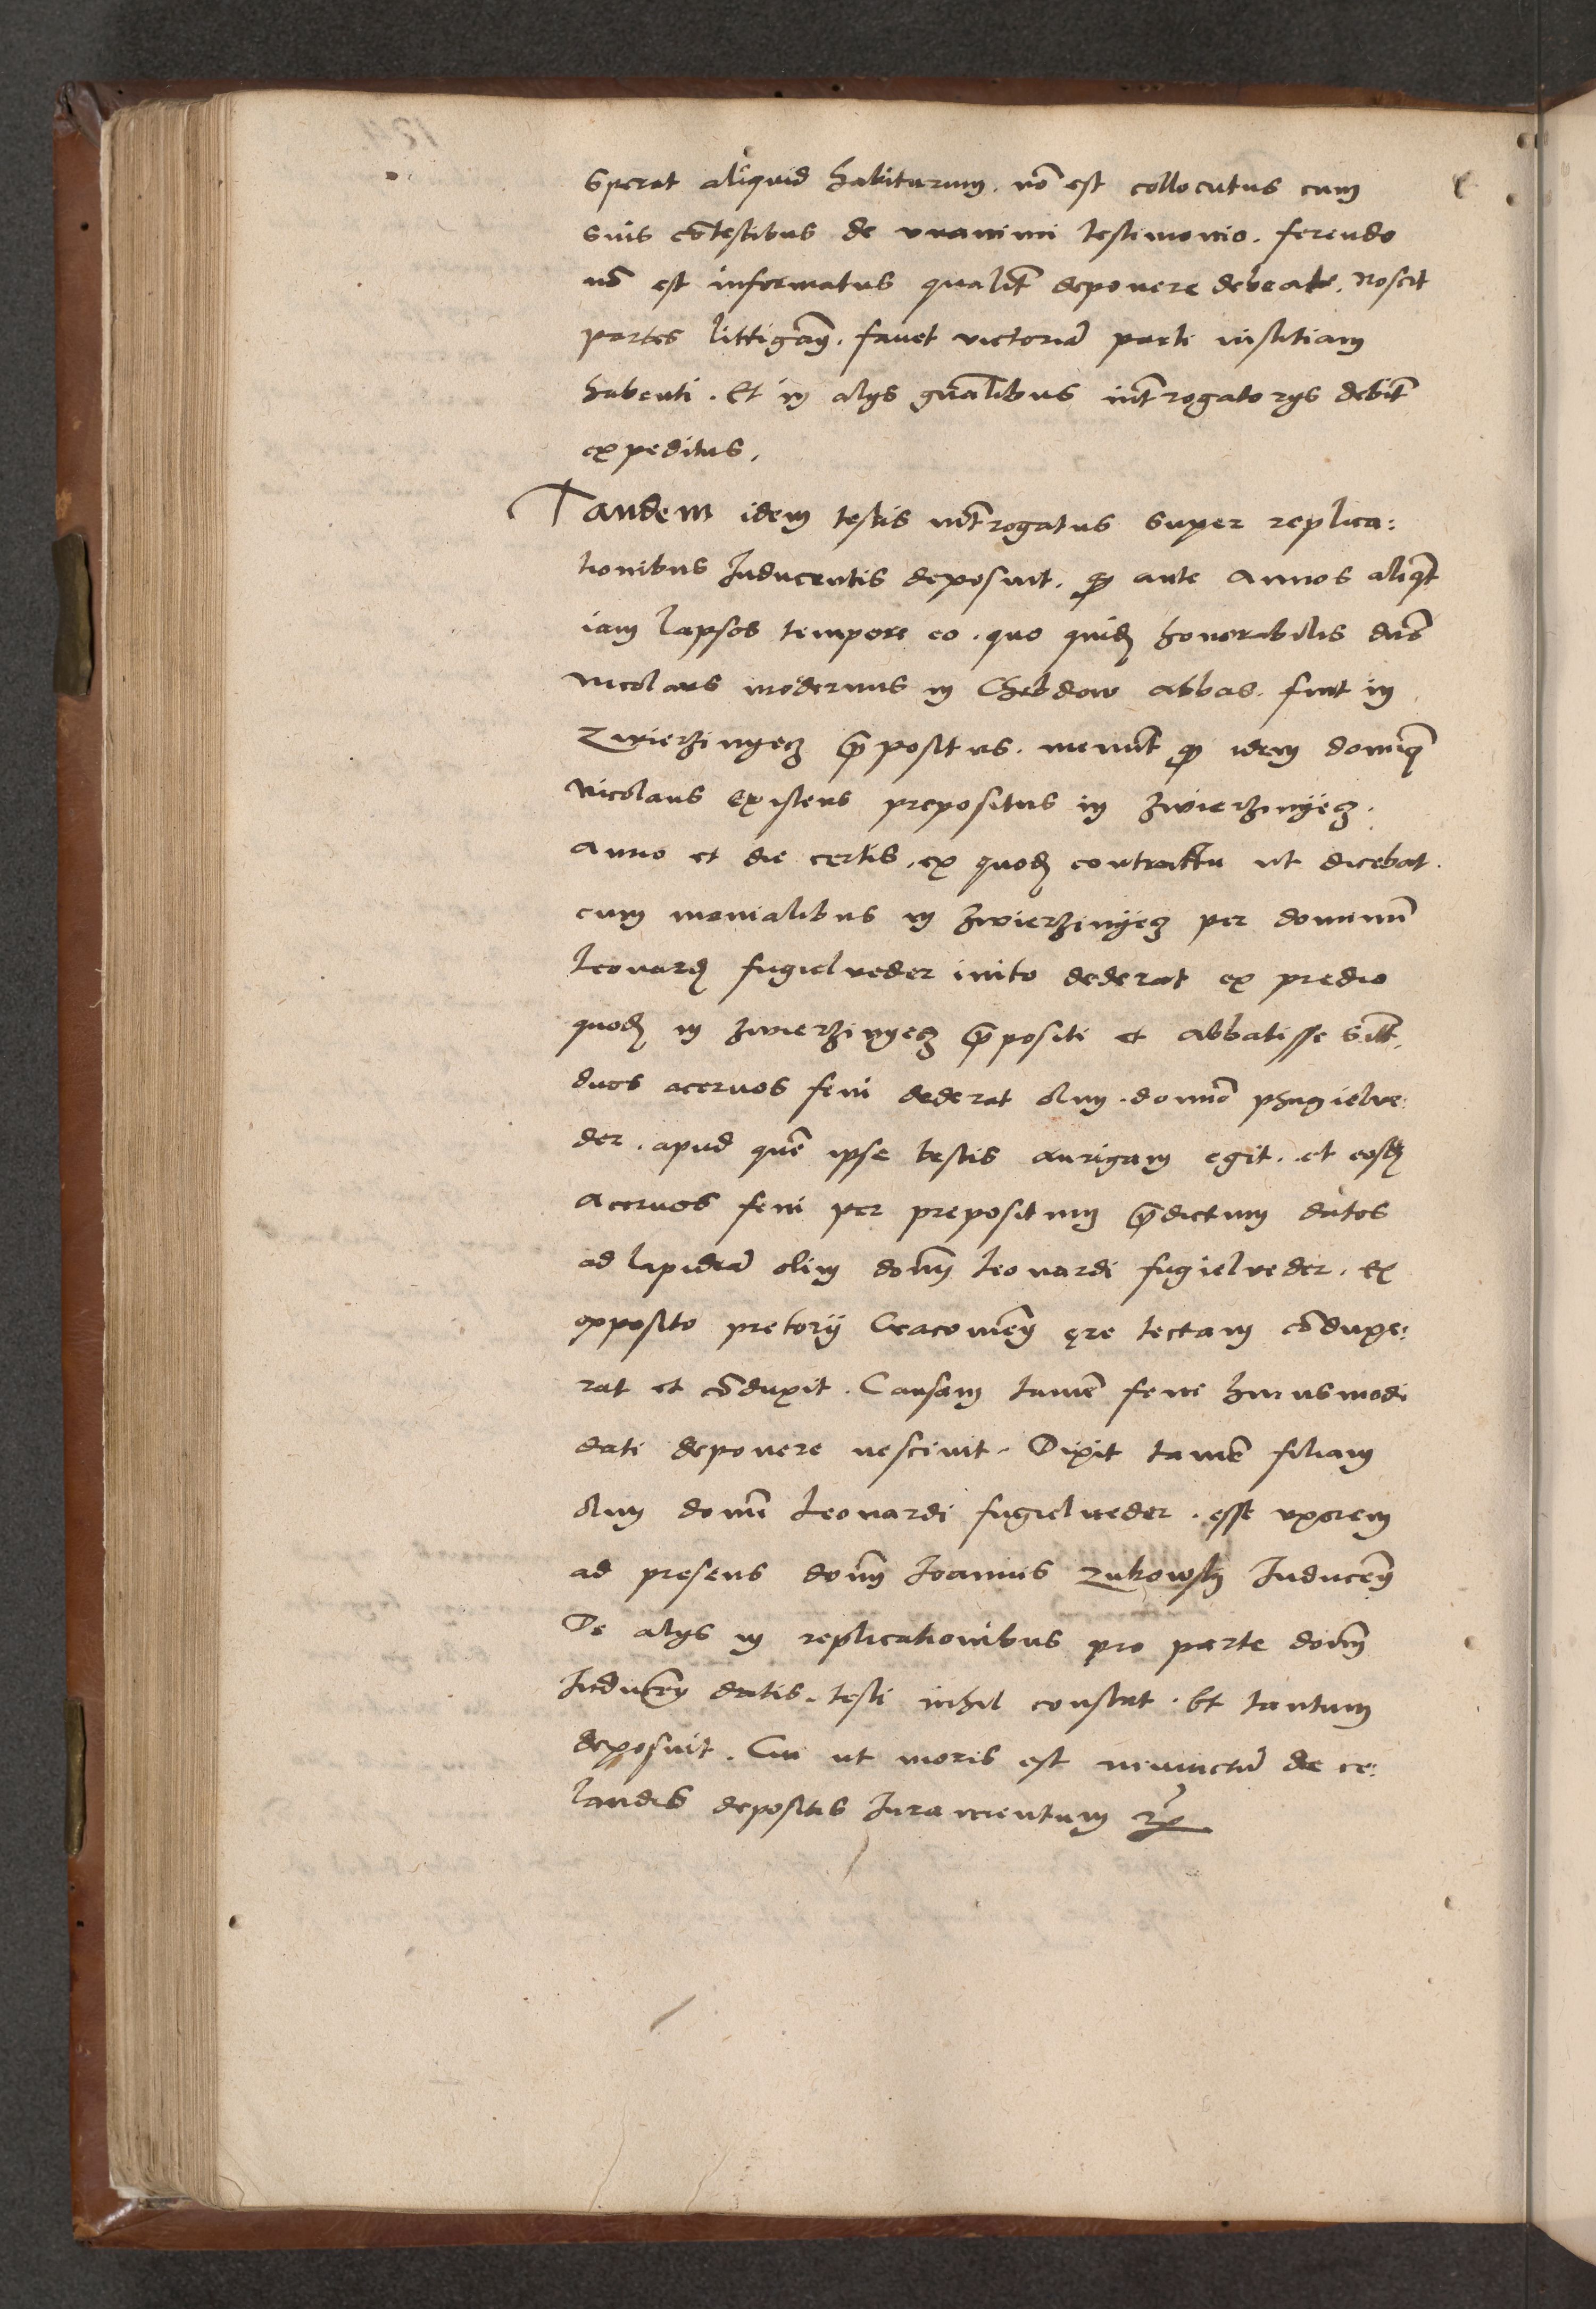 sperat aliquid habiturum. nō est collocutus cum
suis cōtestibus de vnanimi testimonio. ferendo
nō est informatus qualit̄ deponere debeat. Noscit
partes littigan̄. fauet victoriā parti iustitiam
habenti. Et in alys gn̄alibus int̄rogatorys debit̄
expeditus.
Tandem idem testis int̄rogatus super replica:
tionibus Inducentis deposuit. ꝙ ante Annos aliqt̄
iam lapsos tempore eo. quo quid̄ honorabilis dn̄s
Nicolaus modernus in Chebdow abbas. fuit in
Zwierzinyecz p̄positus. meminit ꝙ idem
Nicolaus existens prepositus in Zwierzinyecz.
Anno et die certis. ex quod̄ contraktu ut dicebat.
cum monialibus in Zwierzinyecz per dominū
Leonard̄ fugielveder inito dederat ex predio
quod̄ in Zwierzinyecz p̄positi et abbatisse
duos aceruos feni dederat olim. domīo phugielve:
der. apud quē ipse testis aurigam egit. et eosd̄
Aceruos feni per prepositum p̄dictum datos
ad lapideā olim domī Leonardi fugielveder. Ex
opposito pretorij Cracouien̄ ęre tectam cōduxe:
rat et cōduxit. Causam tamē feni huiusmodi
dati deponere nesciuit. Dixit tamē filiam
olim domī Leonardi fugielveder. esse vxorem
ad presens domī Ioannis Zukowsky Inducen̄
De alys in replicationibus pro parte domī
Inducen̄ datis. testi nihil constat. Et tantum
deposuit. Cui ut moris est iniunctū de ce:
landis depositis Iuramentum